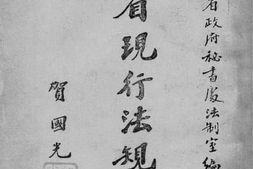 省政府秘書處法制室編
省現行法規
賀國光